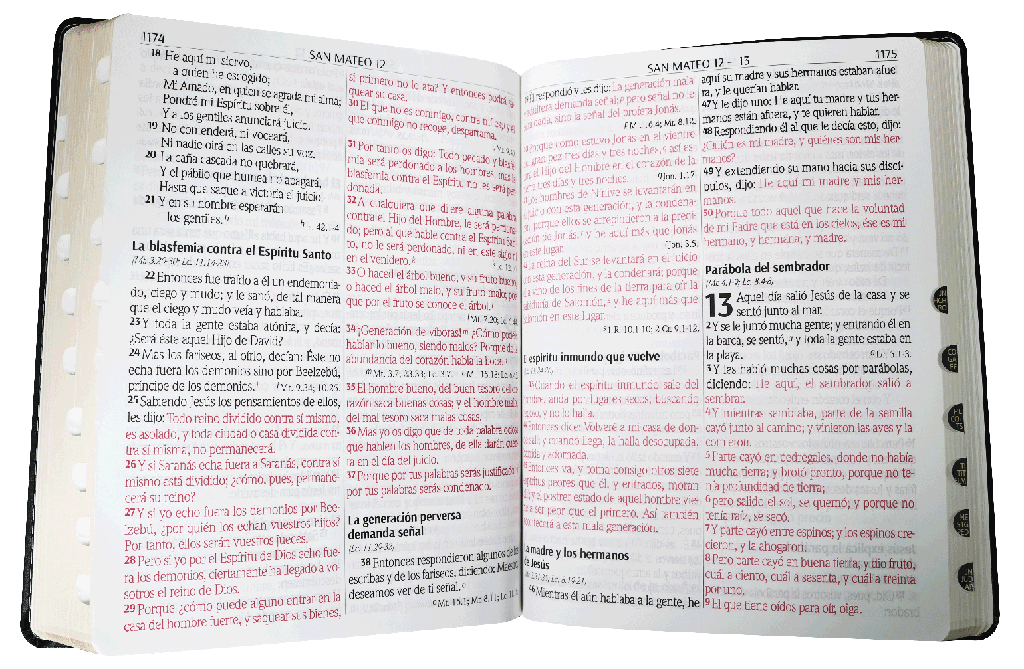 1174
SAN MATEO 12
18 He aquí mi siervo,
a quien he escogido;
Mi Amado, en quien se agrada mi alma;
Pondré mi Espíritu sobre él,
Y a los gentiles anunciará juicio.
19 No contenderá, ni voceará,
Ni nadie oirá en las calles su voz.
20 La caña cascada no quebrará,
Y el pábilo que humea no apagará,
Hasta que saque a victoria el juicio.
21 Y en su nombre esperarán
los gentiles.
La blasfemia contra el Espíritu Santo
(Mr. 3.20-30; Lc. 11.14-23)
22 Entonces fue traído a él un endemonia-
do, ciego y mudo; y le sanó, de tal manera
que el ciego y mudo veía y hablaba.
23 Y toda la gente estaba atónita, y decía:
¿Será éste aquel Hijo de David?
24 Mas los fariseos, al oírlo, decían: Éste no
echa fuera los demonios sino por Beelzebú,
príncipe de los demonios. Mt. 9.34; 10.25.
25 Sabiendo Jesús los pensamientos de ellos,
les dijo: Todo reino dividido contra sí mismo,
es asolado; y toda ciudad o casa dividida con-
tra sí misma, no permanecerá.
26 Y si Satanás echa fuera a Satanás, contra sí
mismo está dividido; ¿cómo, pues, permane-
cerá su reino?
27 Y si yo echo fuera los demonios por Bee-
lzebú, ¿por quién los echan vuestros hijos?
Por tanto, ellos serán vuestros jueces.
28 Pero si yo por el Espíritu de Dios echo fue-
ra los demonios, ciertamente ha llegado a vo-
sotros el reino de Dios.
29 Porque ¿cómo puede alguno entrar en la
casa del hombre fuerte, y saquear sus bienes,
si primero no le ata? Y entonces podrá sa-
quear su casa.
30 El que no es conmigo, contra mí es; y el
que conmigo no recoge, desparrama.
31 Por tanto os digo: Todo pecado y blasfe-
mia será perdonado a los hombres; mas la
blasfemia contra el Espíritu no les será per-
donada.
32 A cualquiera que dijere alguna palabra
contra el Hijo del Hombre, le será perdona-
do; pero al que hable contra el Espíritu San-
to, no le será perdonado, ni en este siglo ni
en el venidero.
33 O haced el árbol bueno, y su fruto bueno,
o haced el árbol malo, y su fruto malo; por-
que por el fruto se conoce el árbol.
Mt. 7.20; Lc. 6.44
34 ¡Generación de víboras! ¿Cómo podéis
hablar lo bueno, siendo malos? Porque de la
abundancia del corazón habla la boca.
Mt. 3.7; 23.33; Lc. 3.7. Mt. 15.18; Lc. 6.45
35 El hombre bueno, del buen tesoro del co-
razón saca buenas cosas; y el hombre malo,
del mal tesoro saca malas cosas.
36 Mas yo os digo que de toda palabra ociosa
que hablen los hombres, de ella darán cuen-
ta en el día del juicio.
37 Porque por tus palabras serás justificado, y
por tus palabras serás condenado.
La generación perversa
demanda señal
(Lc. 11.29-32)
38 Entonces respondieron algunos de los
escribas y de los fariseos, diciendo: Maestro,
deseamos ver de ti señal.
Mt. 16.1; Mr. 8.11; Lc. 11.16
SAN MATEO 12 - 13
1175
respondió y les dijo: La generación mala
adúltera demanda señal; pero señal no le
será dada, sino la señal del profeta Jonás.
Mt. 16.4; Mr. 8.12.
Porque como estuvo Jonás en el vientre
gran pez tres días y tres noches, así es-
el Hijo del Hombre en el corazón de la
tierra tres días y tres noches. Jon. 1.17.
Los hombres de Nínive se levantarán en
juicio con esta generación, y la condena-
porque ellos se arrepintieron a la predi-
ción de Jonás, y he aquí más que Jonás
en este lugar. Jon. 3.5.
La reina del Sur se levantará en el juicio
con esta generación, y la condenará; porque
vino de los fines de la tierra para oír la
sabiduría de Salomón, y he aquí más que
Salomón en este lugar.
1 R. 10.1-10; 2 Cr. 9.1-12.
El espíritu inmundo que vuelve
Cuando el espíritu inmundo sale del
hombre, anda por lugares secos, buscando
reposo, y no lo halla.
Entonces dice: Volveré a mi casa de don-
salí; y cuando llega, la halla desocupada,
barrida y adornada.
Entonces va, y toma consigo otros siete
espíritus peores que él, y entrados, moran
allí; y el postrer estado de aquel hombre vie-
ne a ser peor que el primero. Así también
acontecerá a esta mala generación.
La madre y los hermanos
de Jesús
46 Mientras él aún hablaba a la gente, he
aquí su madre y sus hermanos estaban afue-
ra, y le querían hablar.
47 Y le dijo uno: He aquí tu madre y tus her-
manos están afuera, y te quieren hablar.
48 Respondiendo él al que le decía esto, dijo:
¿Quién es mi madre, y quiénes son mis her-
manos?
49 Y extendiendo su mano hacia sus discí-
pulos, dijo: He aquí mi madre y mis her-
manos.
50 Porque todo aquel que hace la voluntad
de mi Padre que está en los cielos, ése es mi
hermano, y hermana, y madre.
Parábola del sembrador
(Mr. 4.1-9; Lc. 8.4-8)
13 Aquel día salió Jesús de la casa y se
sentó junto al mar.
2 Y se le juntó mucha gente; y entrando él en
la barca, se sentó, y toda la gente estaba en
la playa. Lc. 5.1-3.
3 Y les habló muchas cosas por parábolas,
diciendo: He aquí, el sembrador salió a
sembrar.
4 Y mientras sembraba, parte de la semilla
cayó junto al camino; y vinieron las aves y la
comieron.
5 Parte cayó en pedregales, donde no había
mucha tierra; y brotó pronto, porque no te-
nía profundidad de tierra;
6 pero salido el sol, se quemó; y porque no
tenía raíz, se secó.
7 Y parte cayó entre espinos; y los espinos cre-
cieron, y la ahogaron.
8 Pero parte cayó en buena tierra, y dio fruto,
cuál a ciento, cuál a sesenta, y cuál a treinta
por uno.
9 El que tiene oídos para oír, oiga.